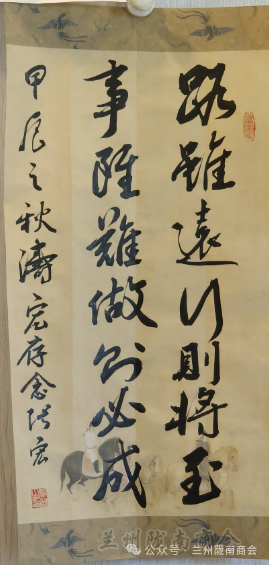 路雖遠行則將至
事雖難做则必成
甲辰之秋濤宏存念 宏
兰州陇南商会
公众号 · 兰州陇南商会